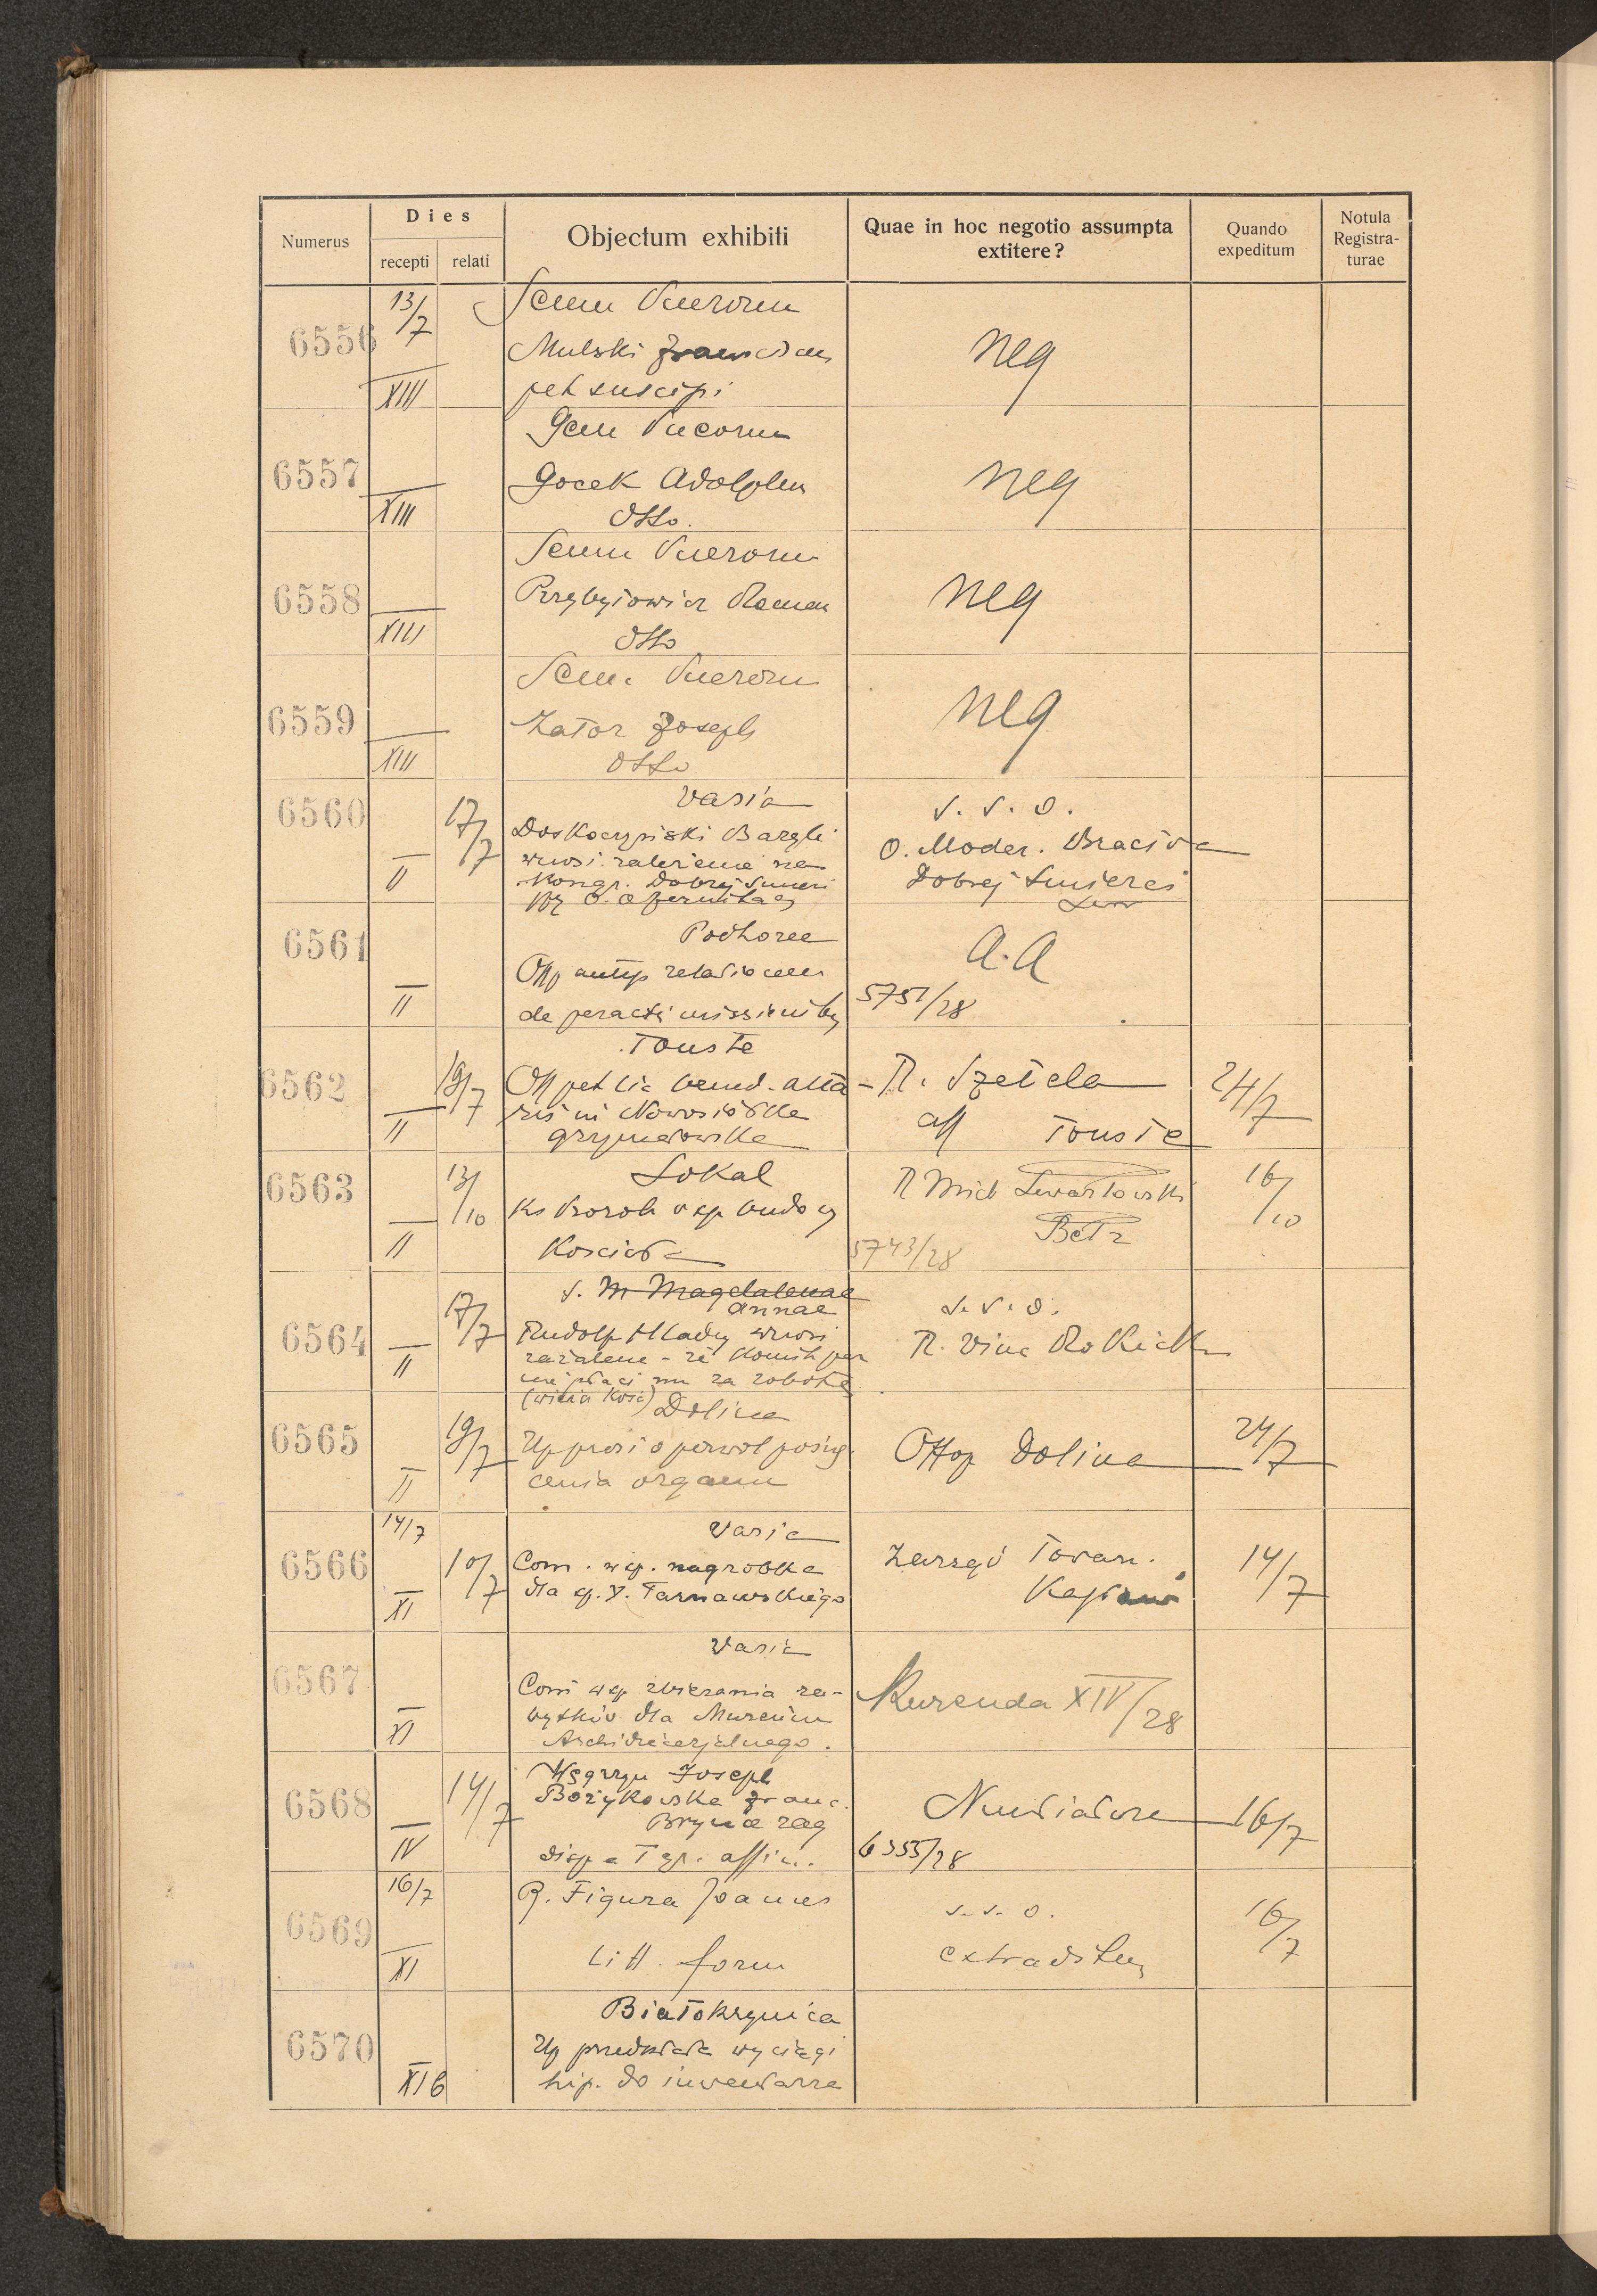 Numerus
Dies
recepti
relati
Objectum exhibiti
Quae in hoc negotio assumpta
extitere?
Quando
expeditum
Notula
Registra-
turae
6556
13/7
XIII
Sem Puerorum
Mulski
pet suscipi
neg
6557
XIII
Puerorum
Gocek Adolphus
Otto.
neg
6558
XIII
Sem Puerorum
Roman
Otto
neg
6559
XIII
Sem. Puerorum
Zator Joseph
Otto
neg
6560
17/7
II
Varia
Doskoczyński Bazyli
wnosi zażalenie na
Kongr. Dobrej Śmierci
s. s. o.
O. Moder. Bractwa
Dobrej Śmierci
6561
II
Podhorce
Offp antyp relationem
de peractis missionibus
a.a
5751/28
6562
19/7
II
Touste
Off pet lic bened. alta-
ris in Nowosiółka
grzymałowska
R. Szetela
Touste
24/7
6563
13/10
II
Sokal
Ks wsp budowy
Kościoła
R Mich
Bełz
5743/28
16/10
6564
17/7
II
S. M Magdalenae
Annae
Rudolf Hladny wnosi
zażalenie - że Komit par
nie płaci mu za robotę
(wieża Kośc)
s. s. o.
R. Vinc Rokicki
6565
19/7
II
Dolina
Up prosi o pozwol poświę-
cenia organu
Offop Dolina
24/7
6566
14/7
10/7
XI
Varia
Com. wsp. nagrobka
dla śp. X. Tarnawskiego
Zarząd Towarz.
Kapłanów
14/7
6567
XI
Varia
Com wsp zbierania za-
bytków dla Muzeum
Archidiecezjalnego.
Kurenda XIV/28
6568
14/7
IV
Węgrzyn Joseph
Bożykowska Franc.
disp a I gr. affin.
Nuntiatura
6355/28
16/7
6569
16/7
XI
R. Figura Joannes
Litt. form
s. s. o.
extradit
16/7
6570
XI6
Białokrynica
Up przedkłada wyciągi
hip. do inwentarza